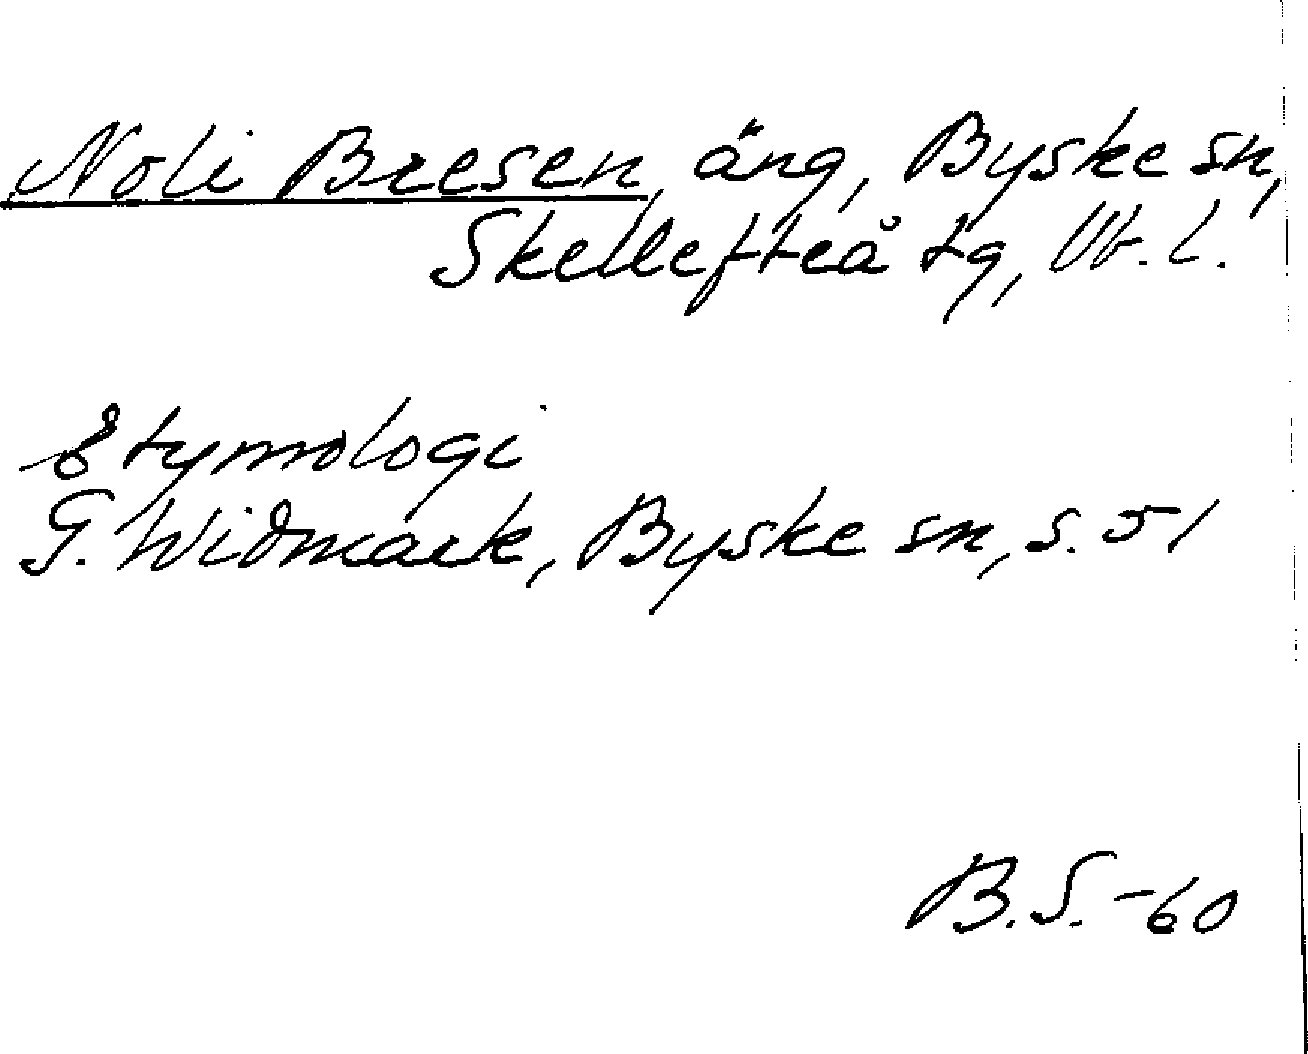 Noli Bresen, äng, Byske sn,
Skellefteå tg, Vb. l.
Etymologi
G. Widmark, Byske sn, s. 51
B.S. -60